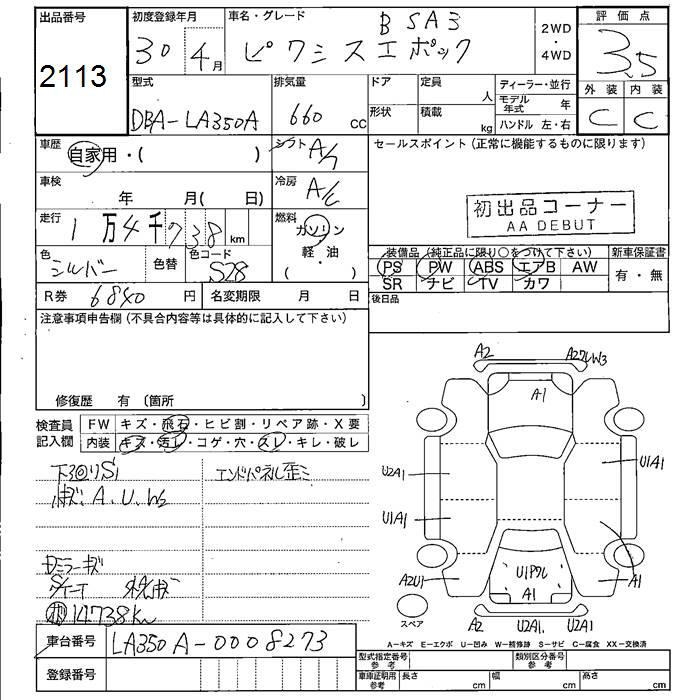 出品番号
2113
初度登録年月
30年4月
車名・グレード
B SA3
ピクシスエポック
2WD
・
4WD
評価点
3.5
外装 内装
C C
型式
DBA-LA350A
排気量
660 cc
ドア
形状
定員 人
積載 kg
ディーラー・並行
モデル年式 年
ハンドル 左・右
車歴
自家用・( )
シフト
A/
車検
年 月( 日)
冷房
A/C
走行
1万4千738km
燃料
ガソリン
軽・油
( )
色
シルバー
色替
色コード
S28
R券 6840円
名変期限 月 日
セールスポイント(正常に機能するものに限ります)
初出品コーナー
AA DEBUT
装備品(純正品に限り○をつけて下さい)
PS PW ABS エアB AW
SR ナビ TV カワ
新車保証書
有・無
後日品
注意事項申告欄(不具合内容等は具体的に記入して下さい)
修復歴 有〔箇所
検査員記入欄
FW キズ・飛石・ヒビ割・リペア跡・X要
内装 キズ・汚レ・コゲ・穴・スレ・キレ・破レ
下回りS1
エンドパネル歪ミ
A、U、W2
ミラーキズ
14738Km
A2
A1
U2A1
U1A1
U1A1
U1A1
A2U1
A1
A1
スペア
A2
U2A1.
U2A1
A-キズ E-エクボ U-凹み W-補修跡 S-サビ C-腐食 XX-交換済
車台番号 LA350A-0008273
登録番号
型式指定番号
参考
類別区分番号
参考
車庫証明用
参考
長さ cm
幅 cm
高さ cm